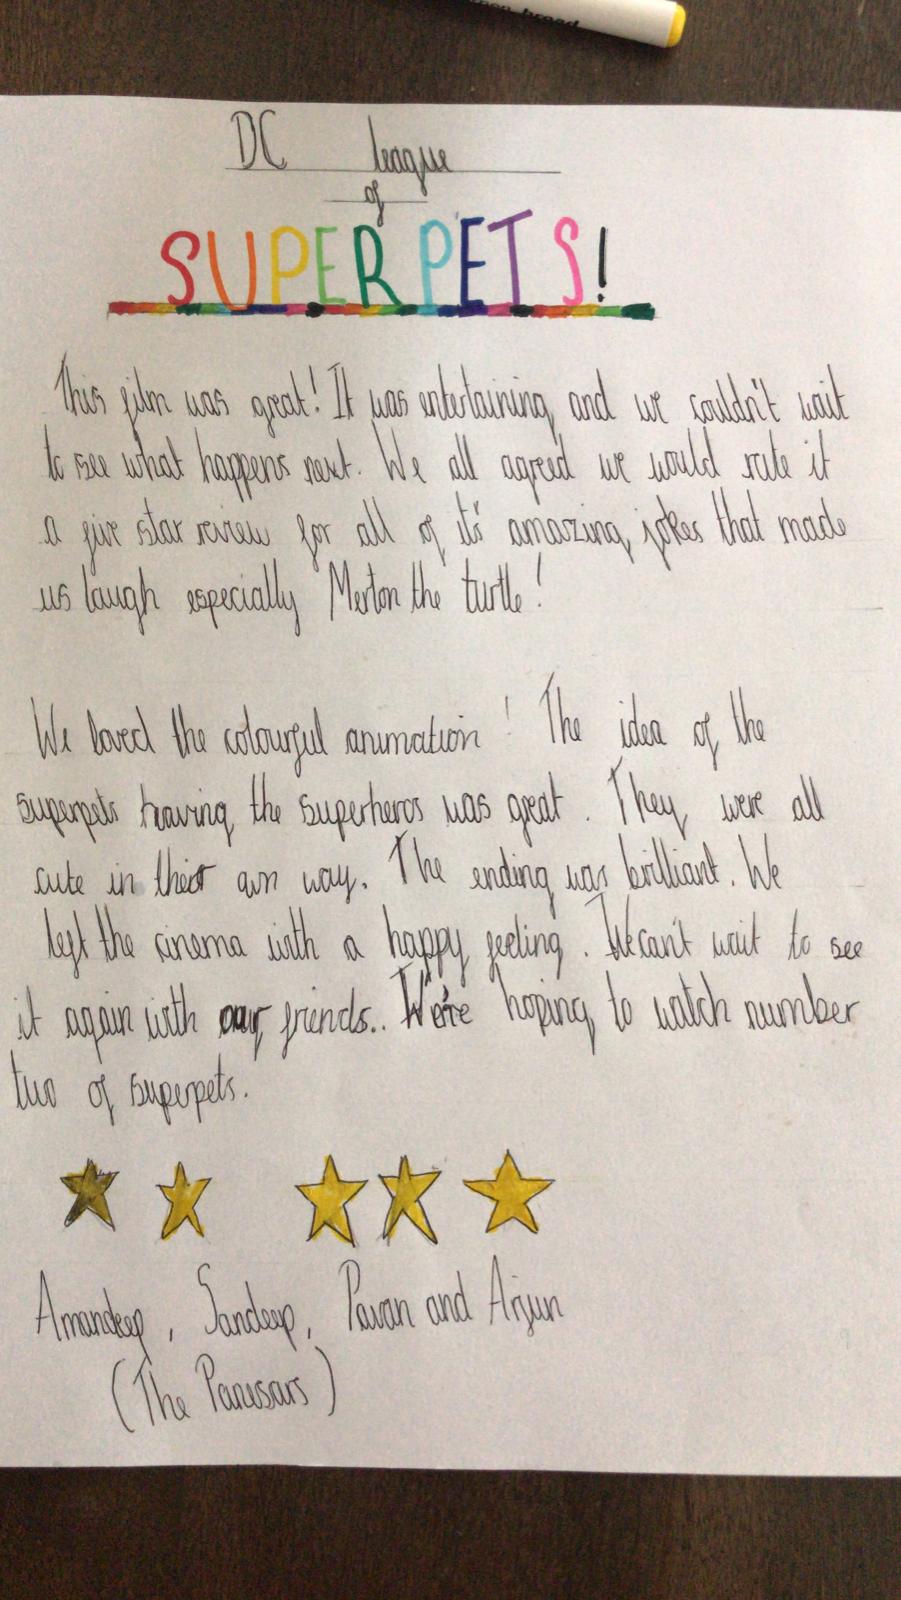 DC league
of
SUPER PETS!
This film was great! It was entertaining and we couldn't wait
to see what happens next. We all agreed we would rate it
a five star review for all of it's amazing jokes that made
us laugh especially Merton the turtle!
We loved the colourful animation! The idea of the
superpets having the superheros was great. They were all
cute in their own way. The ending was brilliant. We
left the cinema with a happy feeling. We can't wait to see
it again with our friends.. We're hoping to watch number
two of superpets.
Amandeep, Sandeep, Pavan and Arjun
(The)